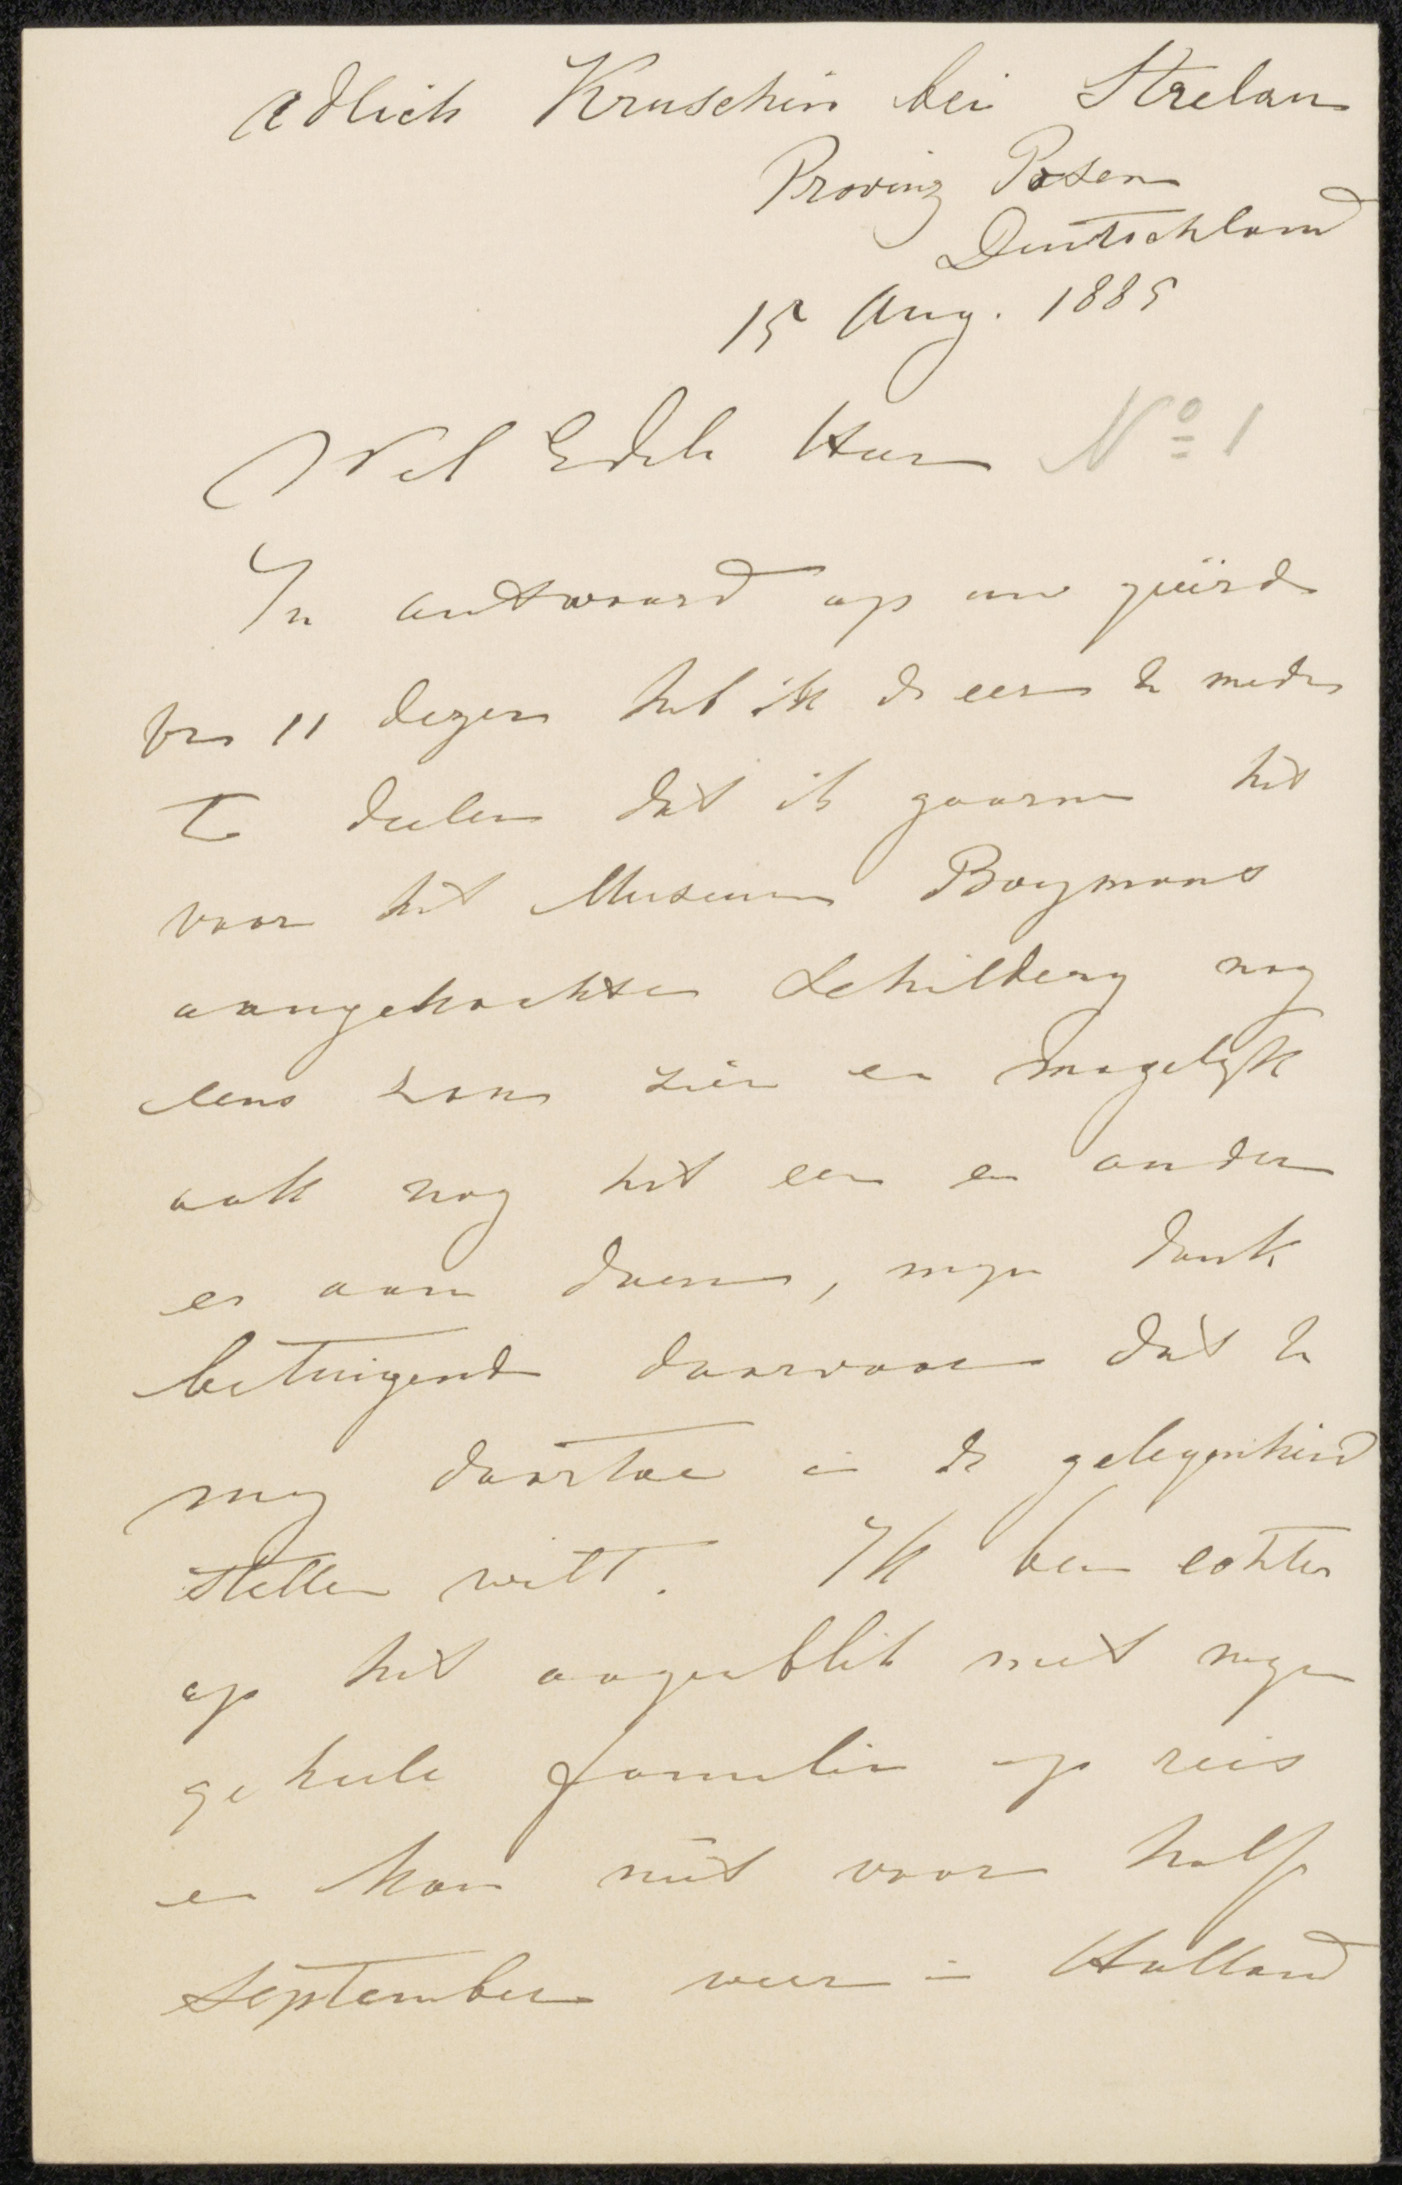 Adlich Kruschin bei Strelau
Provinz Posen
Deutschland
15 Aug. 1885
Wel Edele Heer Nº 1
In antwoord op uw geëerde
van 11 dezer heb ik de eer U mede
te deelen dat ik gaarne het
voor het Museum Boymans
aangekochte Schildery nog
eens zou zien en mogelyk
ook nog het een en ander
er aan doen, myn dank
betuigend daarvoor dat U
my daartoe in de gelegenheid
stellen wilt. Ik ben echter
op het oogenblik met myn
geheele familie op reis
en kan niet voor half
September weer in Holland